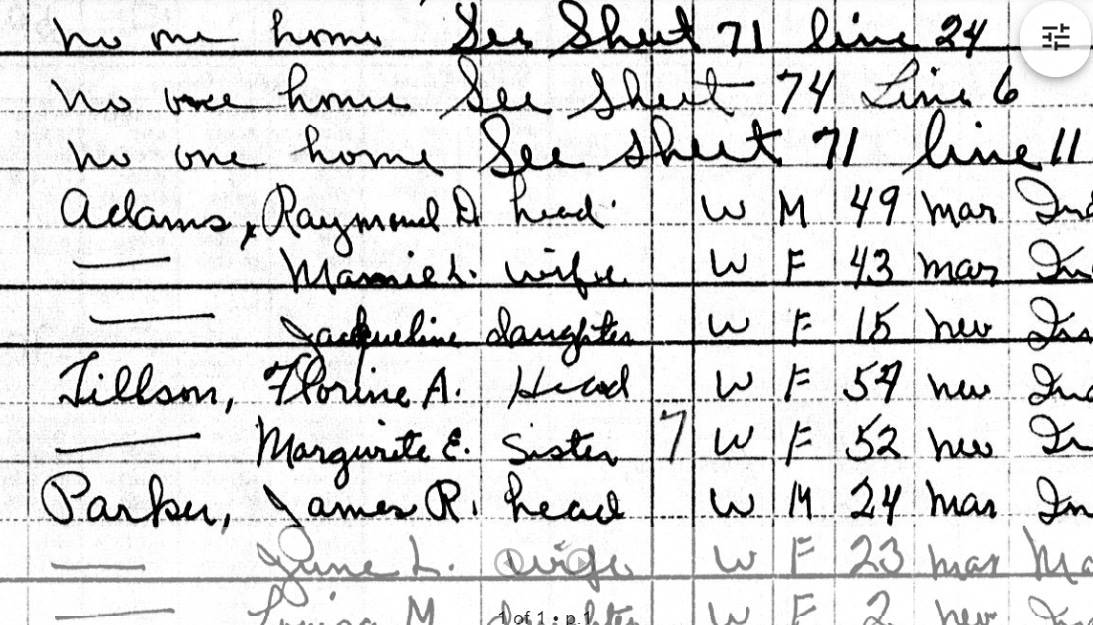 no one home See Sheet 71 line 24
no one home See Sheet 74 Line 6
no one home See sheet 71 line 11
Adams, Raymond D head W M 49 mar Ind
— Mamie L. wife W F 43 mar In
— Jacqueline daughter W F 15 nev In
Tillson, Florine A. Head W F 54 nev Ind
— Marguirete E. Sister 7 W F 52 nev In
Parker, James R. head W M 24 mar In
— June L. wife W F 23 mar Ma
— M. daughter W F 2 nev In
1 of 1 • p.1